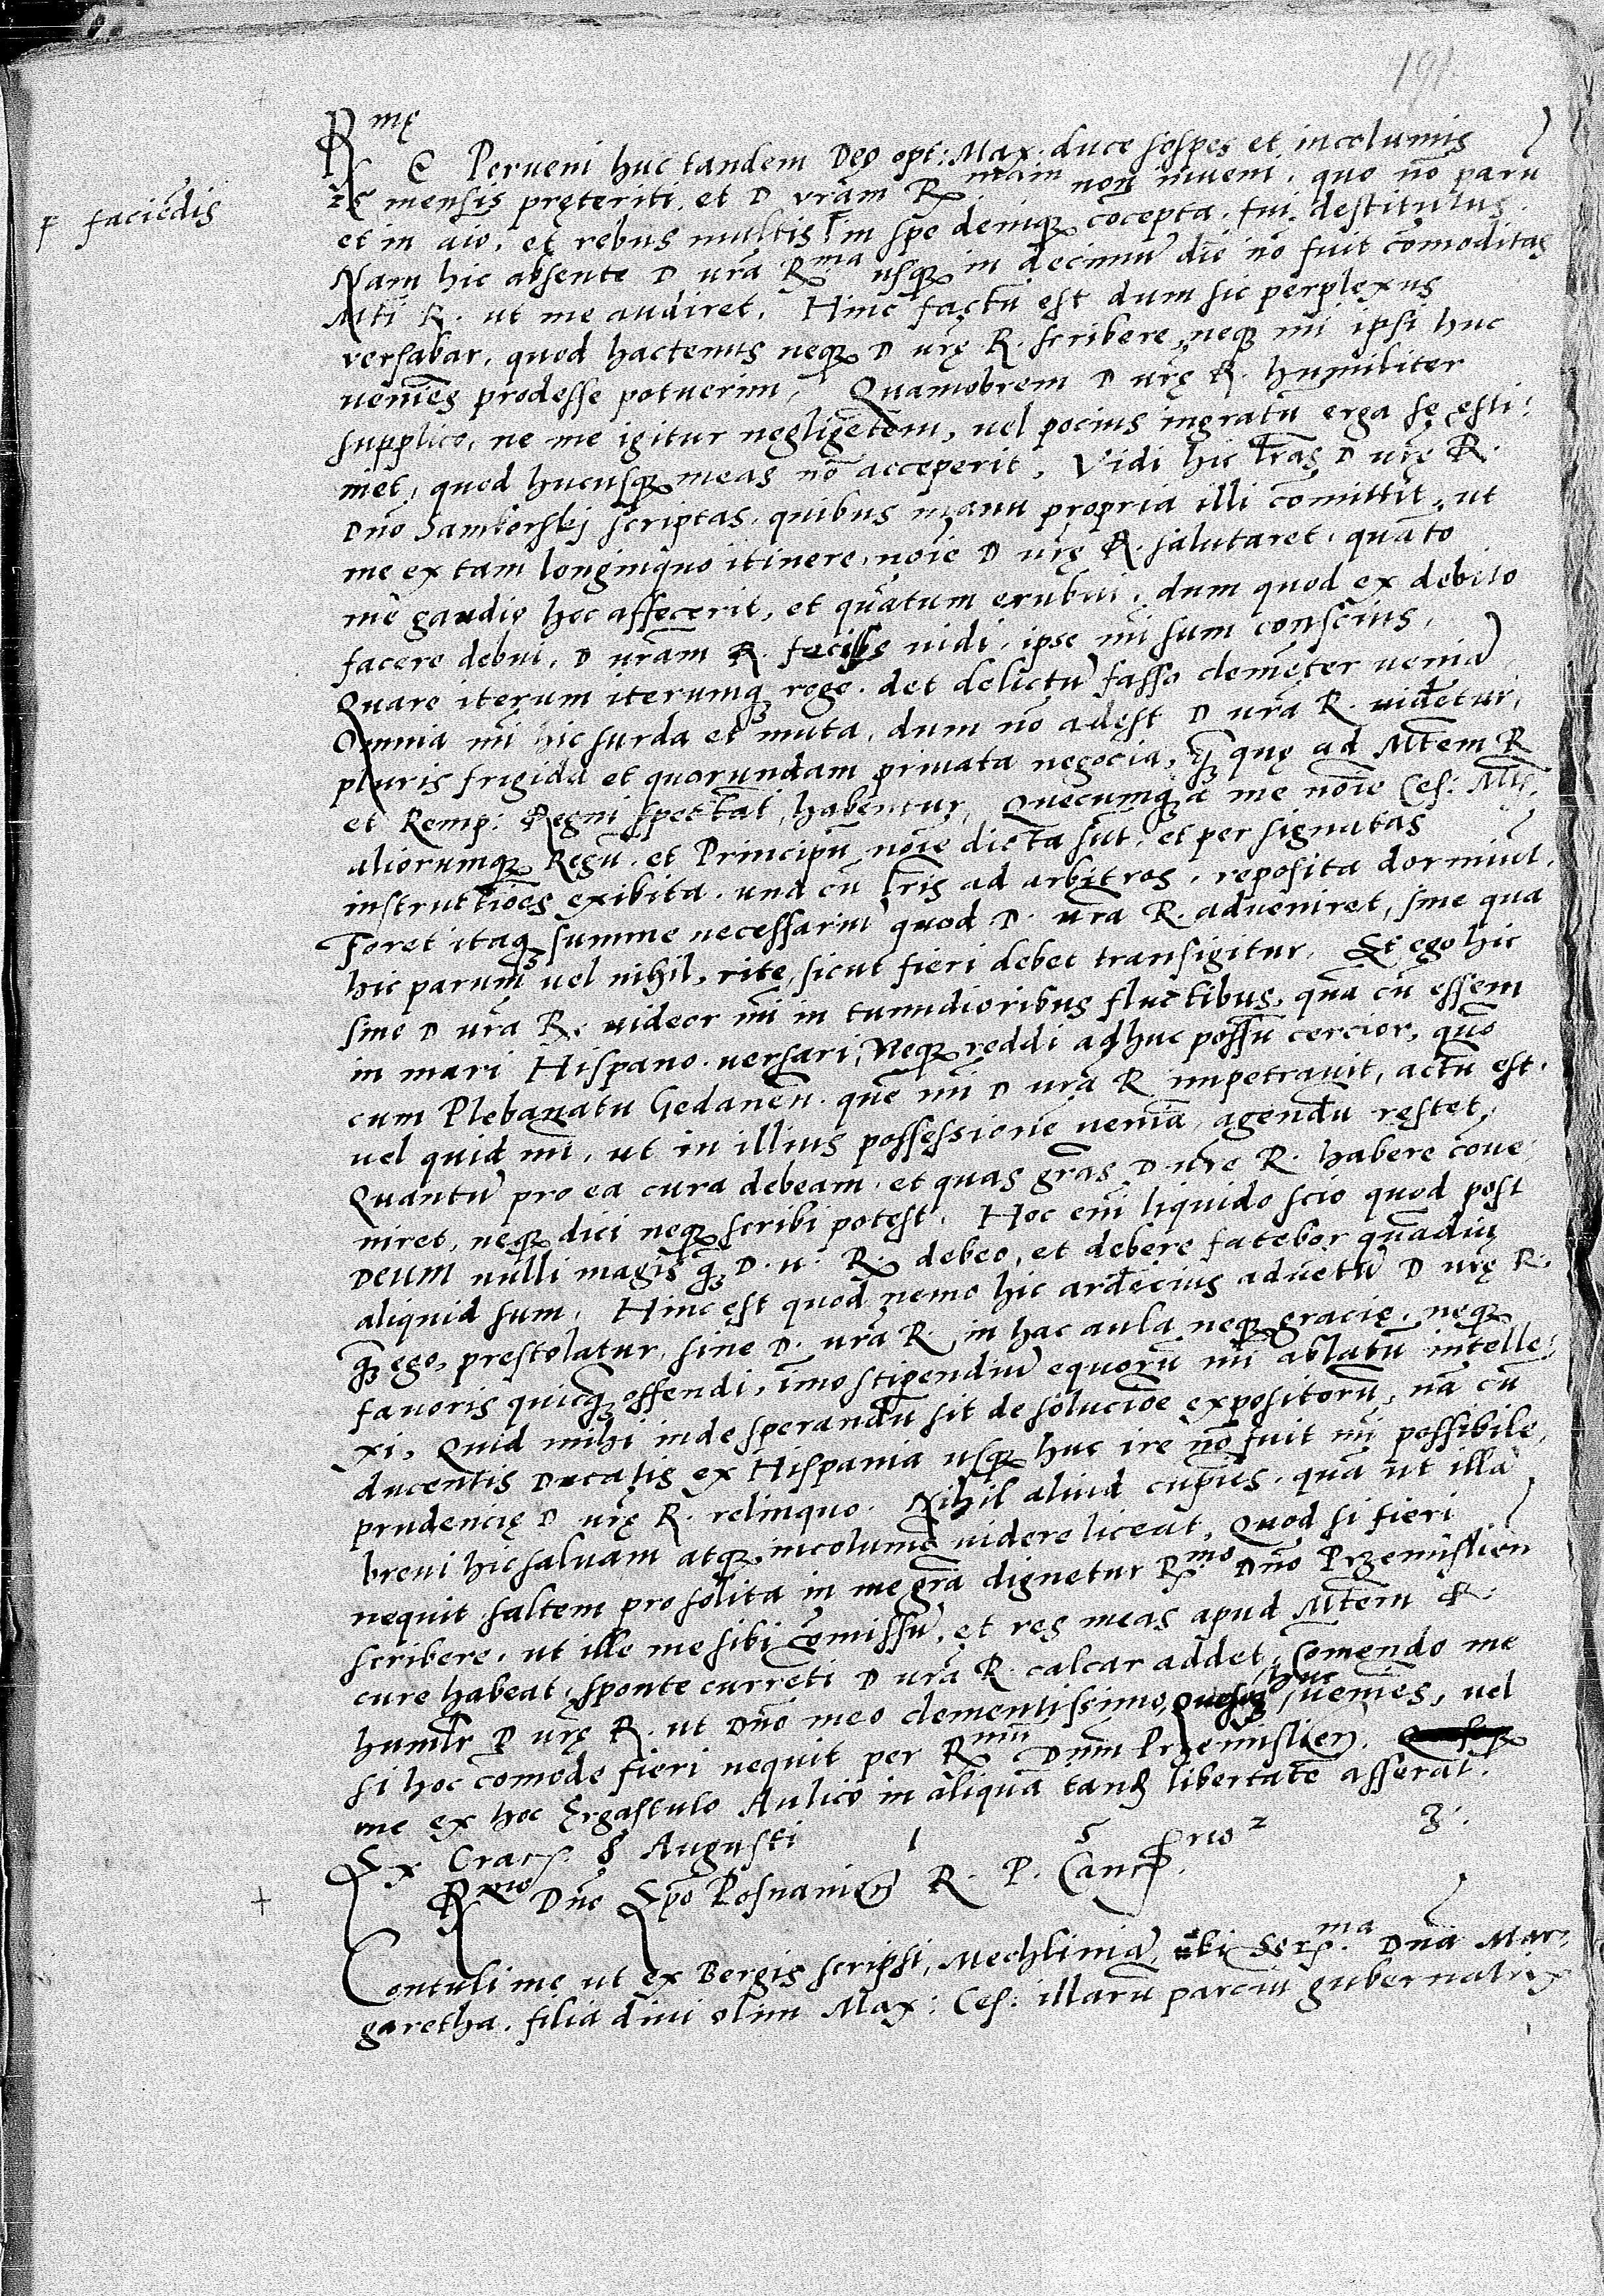 191
Rme
Perveni huc tandem Deo opt: Max: duce sospes et incolumis
25 mensis pręteriti, et D vrãm Rmam non inveni, quo nõ parũ
ꝼ faciẽdis
et in aĩo, et rebus multis ꝼ in spe denique cõcepta, fui destitutus.
Nam hic absente D vrã Rma usque in decimũ diẽ nõ fuit cõmoditas
Mti R. ut me audiret. Hinc factũ est dum sic perplexus
versabar, quod hactenus neque D vrę R. scribere, neque mi ipsi huc
veniẽs prodesse potuerim, Quamobrem D vrę R. humiliter
supplico, ne me igitur negligẽtem, vel pocius ingratũ erga se esti:
met, quod hucusque meas nõ acceperit, Vidi hic lrãs D vrę R.
Dno Samborskj scriptas, quibus manu propria illi cõmittit, ut
me ex tam longinquo itinere, noĩe D vrę R. salutaret, quãto
me gaudio hoc affecerit, et quãtum erubui, dum quod ex debito
facere debui, D vrãm R. fecisse vidi, ipse mi sum conscius,
Quare iterum iterumque rogo, det delictũ fasso clemẽter veniã
Omnia mi hic surda et muta, dum nõ adest D vrã R. videtur,
pluris frigida et quorundam privata negocia, quę ad Mtem R
et Remp: Regni spectãt, habentur, Quecumque a me noĩe Ces: Mtis.
aliorumque Regũ et Principũ noĩe dicta sũt, et per signatas
instructiões exibita, una cũ lrĩs ad arbitros, reposita dormiũt.
Foret itaque summe necessariũ quod D. vrã R. adveniret, sine qua
hic parum vel nihil, rite, sicut fieri debet transigitur. Et ego hic
sine D vrã R. videor mi in tumidioribus fluctibus, quã cũ essem
in mari Hispano versari, Neque reddi adhuc possũ cercior, quõ
cum Plebanatu Gedanen. quẽ mi D vrã R impetravit, actũ est.
vel quid mi, ut in illius possessionẽ veniã, agendũ restet,
Quantũ pro ea cura debeam, et quas grãs D vrę R. habere cõve
niret, neque dici neque scribi potest. Hoc eni liquido scio quod post
DEUM nulli magis q̃ D. v. R. debeo, et debere fatebor quãdiu
aliquid sum. Hinc est quod nemo hic ardẽcius advẽtũ D vrę R.
q̃ ego, prestolatur, sine D. vrã R. in hac aula neque gracię, neque
favoris quicq̃ offendi, ĩmo stipendiũ equorũ mi ablatũ intelle:
xi, Quid mihi inde sperandũ sit de soluciõe expositorũ, nã cũ
ducentis Ducatis ex Hispania usque huc ire nõ fuit mi possibile,
prudencię D vrę R. relinquo. Nihil aliud cupiẽs, quã ut illã
brevi hic salvam atque incolumẽ videre liceat, Quod si fieri
nequit saltem pro solita in me grã dignetur Rmo Dno Przemislien
scribere, ut ille me sibi cõmissũ, et res meas apud Mtem R.
cure habeat, sponte currẽti D vrã R. calcar addet, Comendo me
humlr D vrę R. ut Dno meo clementissimo, huc veniẽs, vel
si hoc comode fieri nequit per Rmũ Dnm Przemislien.
me ex hoc Ergastulo Aulico in aliquã tand libertatẽ asserat.
Ex Crac. 8 Augusti 1 5 2 3.
Rmo Dno Epo Posnanien R. P. Canc.
Contuli me ut ex Bergis scripsi, Mechliniã, ubi Serma Dnã Mar:
garetha, filia divi olim Max: Ces: illarũ parciũ gubernatrix